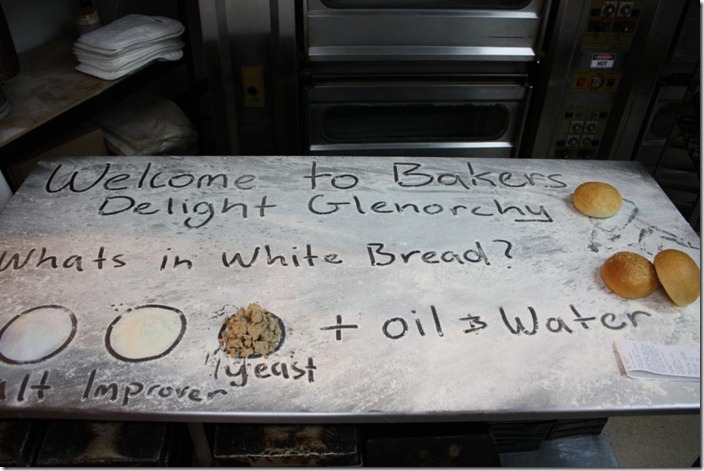 Welcome to Bakers
Delight Glenorchy
Whats in White Bread?
+ oil & Water
alt Improver yeast
HOT